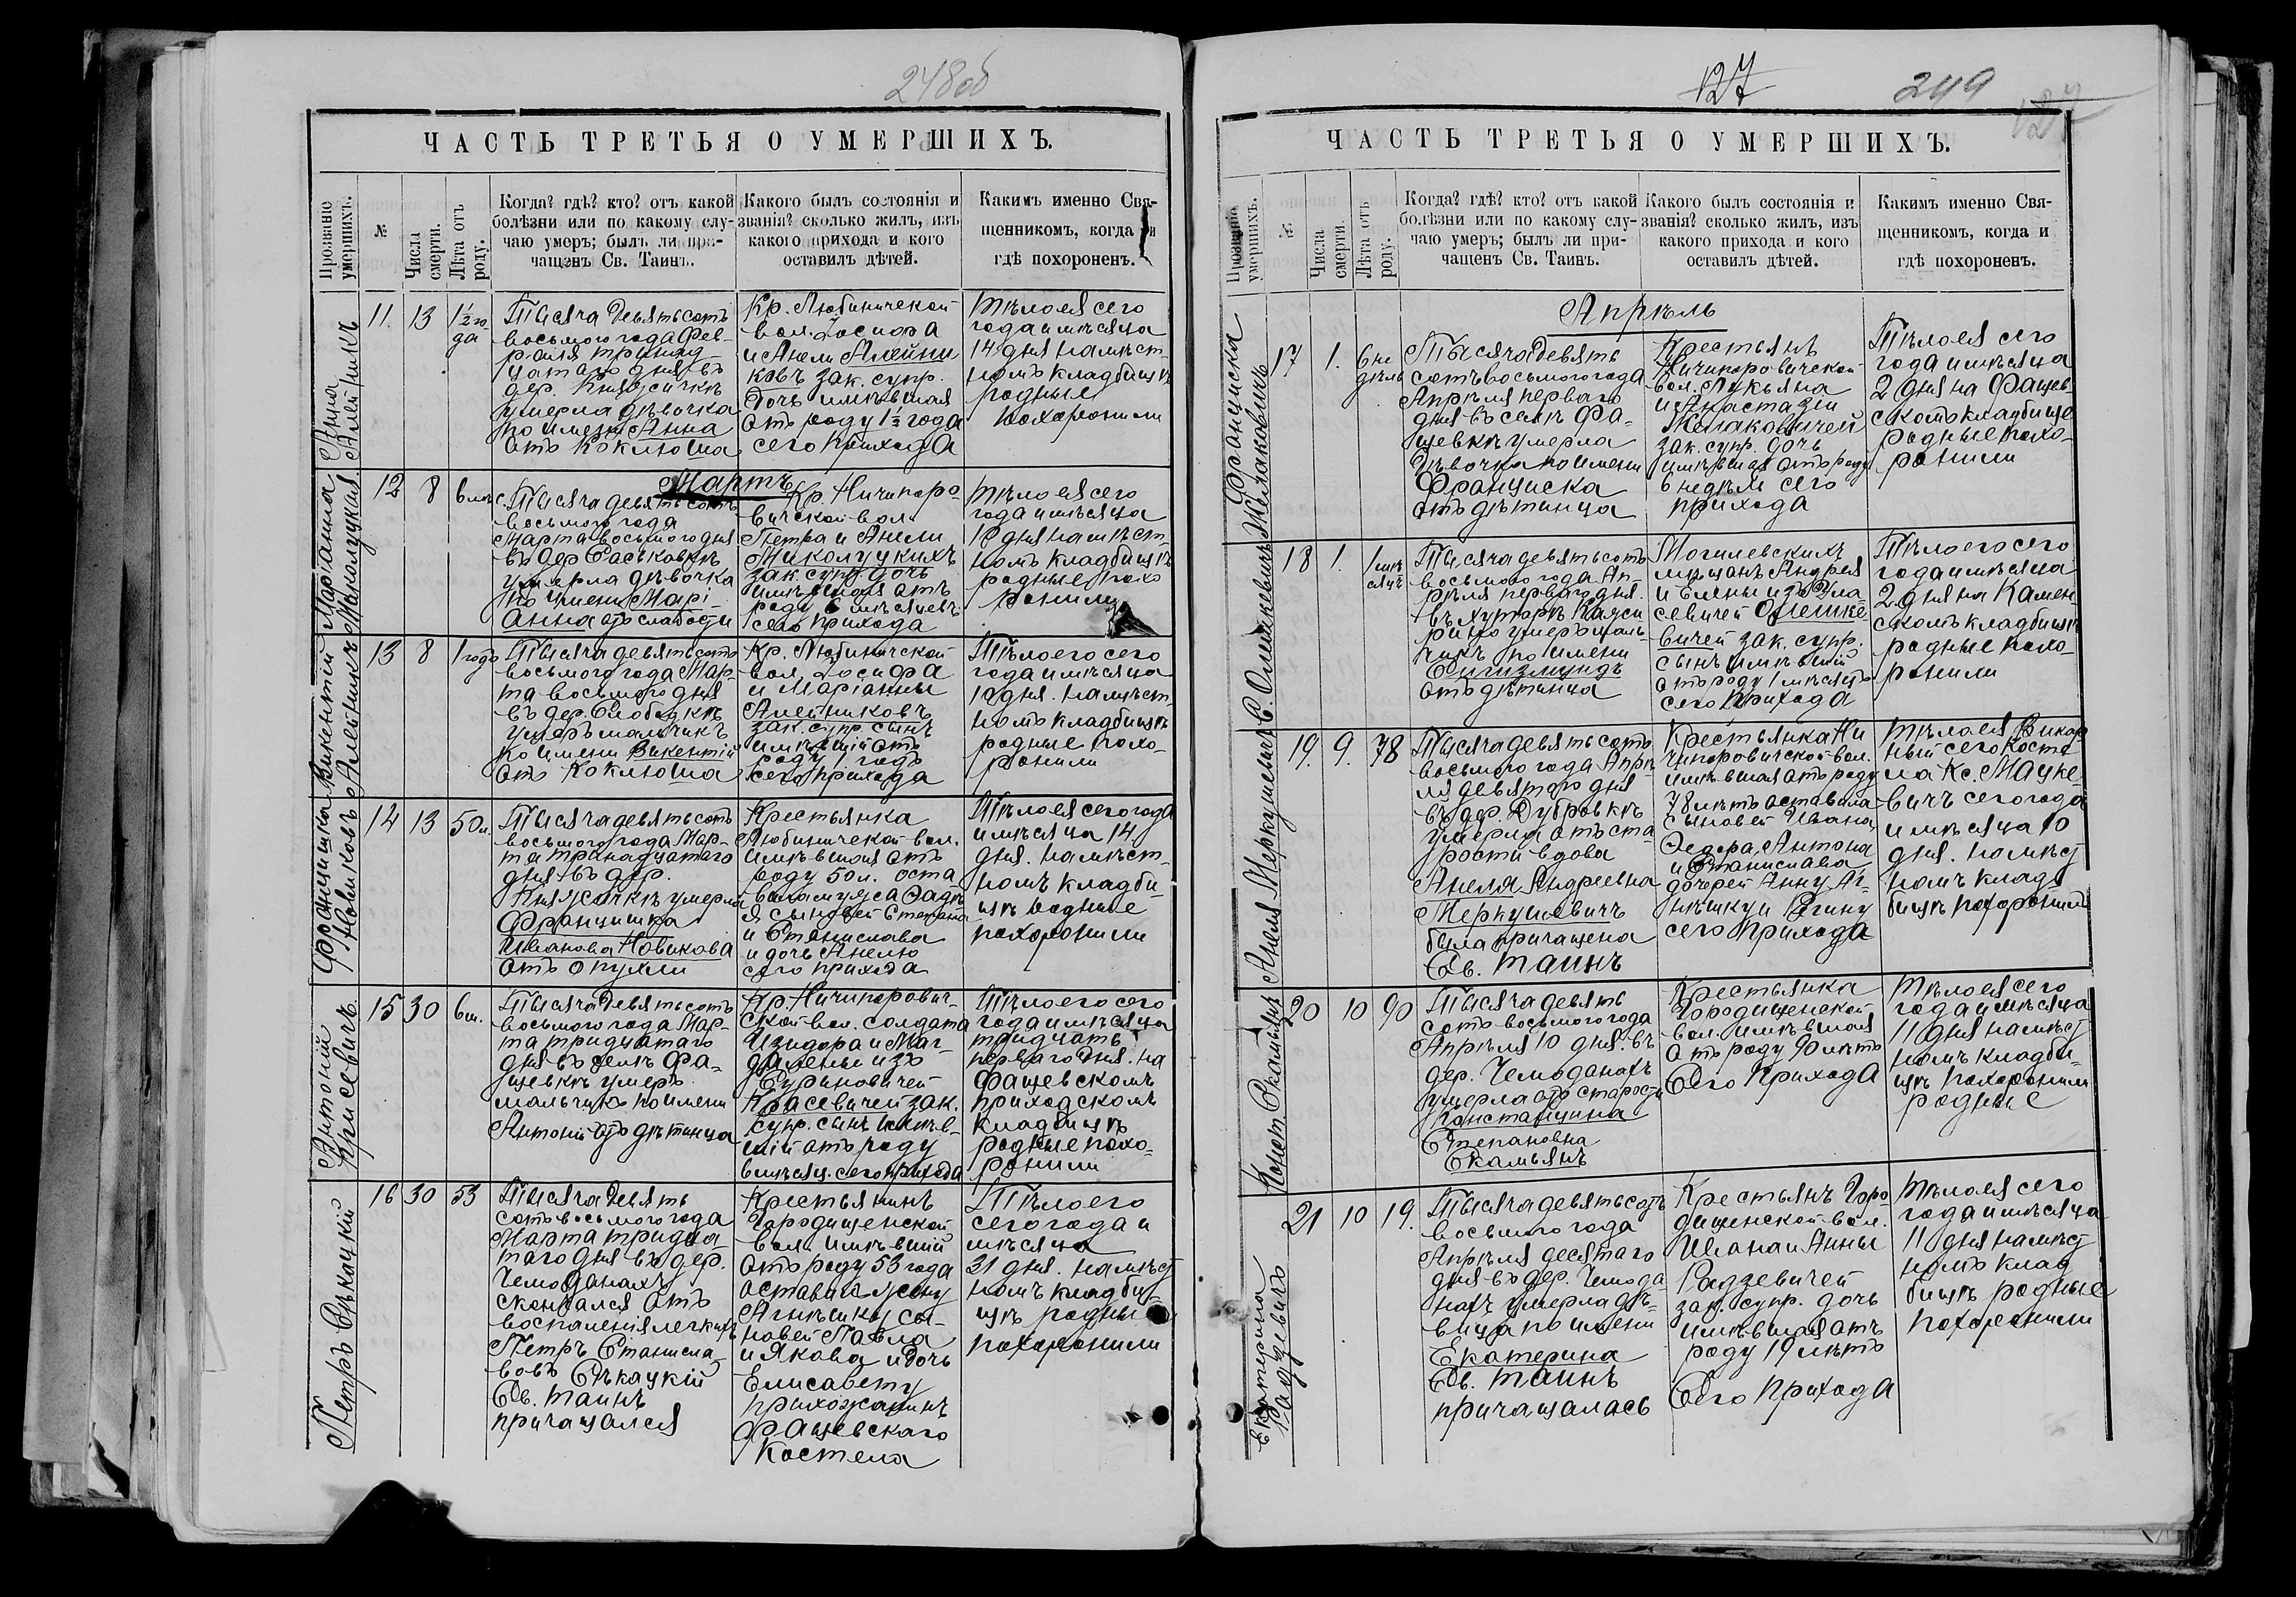 248об
ЧАСТЬ ТРЕТЬЯ О УМЕРШИХЪ.
Прозваніе умершихъ.
№
Числа смерти.
Лѣта отъ роду.
Когда? гдѣ? кто? отъ какой
болѣзни или по какому слу-
чаю умеръ; былъ ли при-
чащенъ Св. Таинъ.
Какого былъ состоянія и
званія? сколько жилъ, изъ
какого прихода и кого
оставилъ дѣтей.
Какимъ именно Свя-
щенникомъ, когда и
гдѣ похороненъ.
Анна
Алейникъ
11. 13 1½ го-
да
Тысяча девятьсотъ
восьмого года Фев-
раля тринад-
цатаго дня въ
дер.
умерла дѣвочка
по имени Анна
отъ коклюша
Кр. Любиничской
вол. Іосифа
и Анели Алейни
ковъ зак. супр.
дочь имѣвшая
отъ роду 1½ года
сего прихода
Тѣло ея сего
года и мѣсяца
14 дня на мѣст-
номъ кладбищѣ
родные
похоронили
Мартъ
Маріанна
Миколуцкая
12 8 6 мѣс.
Тысяча девятьсотъ
восьмого года
Марта восьмого дня
въ дер. Еаськовкѣ
умерла дѣвочка
по имени Марі-
анна отъ слабости
Кр. Ничипоро-
вичской вол.
Петра и Анели
Миколуцкихъ
зак. супр. дочь
имѣвшая отъ
роду 6 мѣсяцевъ
сего прихода
Тѣло ея сего
года и мѣсяца
10 дня на мѣст-
номъ кладбищѣ
родные похо
ронили
Викентій
Алейникъ
13 8 1 годъ
Тысяча девятьсотъ
восьмого года Мар-
та восьмого дня
въ дер. Слободкѣ
умеръ мальчикъ
по имени Викентій
отъ коклюша
Кр. Любиничской
вол. Іосифа
и Маріанны
Алейниковъ
зак. супр. сынъ
имѣвшій отъ
роду 1 годъ
сего прихода
Тѣло его сего
года и мѣсяца
10 дня. на мѣст-
номъ кладбищѣ
родные похо-
ронили
Францишка
Новиковъ
14 13 50 л.
Тысяча девятьсотъ
восьмого года Мар-
та тринадцатаго
дня въ дер.
умерла
Францишка
Иванова Новикова
отъ опухли
Крестьянка
Любиничской вол.
имѣвшая отъ
роду 50 л. оста
вила мужа Фадѣ
я сыновей Степана
и Станислава
и дочь Анелю
сего прихода
Тѣло ея сего года
и мѣсяца 14
дня. на мѣст-
номъ кладби-
щѣ родные
похоронили
Антоній
Красевичъ
15 30 6 м.
Тысяча девятьсотъ
восьмого года Мар-
та тридцатаго
дня въ селѣ Фа-
щевкѣ умеръ
мальчикъ по имени
Антоній отъ дѣтинца
Кр. Ничипорович-
ской вол. солдата
Изидора и Маг-
далены изъ
Буриновичей
Красевичей зак.
супр. сынъ имѣв-
шій отъ роду
6 мѣсяц. сего прихода
Тѣло его сего
года и мѣсяца
тридцать
перваго дня. на
Фащевскомъ
приходскомъ
кладбищѣ
родные похо-
ронили
Петръ Сѣкацкій
16 30 53
Тысяча девять
сотъ восьмого года
Марта тридца-
таго дня въ дер.
Чемоданахъ
скончался отъ
воспаленія легкихъ
Петръ Станисла-
вовъ Сѣкацкій
Св. таинъ
причащался
Крестьянинъ
Городищенской
вол. имѣвшій
отъ роду 53 года
оставилъ жену
Агнѣшку сы-
новей Павла
и Якова и дочь
Елисавету
прихожанинъ
Фащевскаго
костела
Тѣло его
сего года и
мѣсяца
31 дня. на мѣст
номъ кладби-
щѣ родны
похоронили
127
249
127
ЧАСТЬ ТРЕТЬЯ О УМЕРШИХЪ.
Прозваніе умершихъ.
№
Числа смерти.
Лѣта отъ роду.
Когда? гдѣ? кто? отъ какой
болѣзни или по какому слу-
чаю умеръ; былъ ли при-
чащенъ Св. Таинъ.
Какого былъ состоянія и
званія? сколько жилъ, изъ
какого прихода и кого
оставилъ дѣтей.
Какимъ именно Свя-
щенникомъ, когда и
гдѣ похороненъ.
Апрѣль
Франциска
Жилаковичъ
17 1. 6 не
дѣль
Тысяча девять
сотъ восьмого года
Апрѣля перваго
дня въ селѣ Фа-
щевкѣ умерла
дѣвочка по имени
Франциска
отъ дѣтинца
Крестьянъ
Ничипоровичской
вол. Лукьяна
и Анастазіи
Жилаковичей
зак. супр. дочь
имѣвшая отъ роду
6 недѣль сего
прихода
Тѣло ея сего
года и мѣсяца
2 дня на Фащев-
скомъ кладбище
родные похо-
ронили
С. Олешкевичъ
18 1. 1 мѣ
сяцъ
Тысяча девятьсотъ
восьмого года Ап-
рѣля перваго дня.
въ хуторѣ
умеръ маль-
чикъ по имени
Сигизмундъ
отъ дѣтинца
Могилевскихъ
мѣщанъ Андрея
и Елены изъ
Олешке-
вичей зак. супр.
сынъ имѣвшій
отъ роду 1 мѣсяцъ
сего прихода
Тѣло его сего
года и мѣсяца
2 дня на Камен-
скомъ кладбищѣ
родные похо-
ронили
Анеля Меркушевичъ
19. 9. 78
Тысяча девятьсотъ
восьмого года Апрѣ
ля девятаго дня
въ дер. Дубровкѣ
умерла отъ ста-
рости вдова
Анеля Андреевна
Меркушевичъ
была причащена
Св. таинъ
Крестьянка Ни
чипоровичской вол.
имѣвшая отъ роду
78 лѣтъ оставила
сыновей Ивана,
Федора, Антона
и Станислава
дочерей Анну Аг-
нѣшку и Регину
сего прихода
Тѣло ея Викар-
ный сего косте
ла Кс. Мацке-
вичъ сего года
и мѣсяца 10
дня. на мѣст
номъ клад-
бищѣ похоронилъ
Конст. Скамьянъ
20 10 90
Тысяча девять
сотъ восьмого года
Апрѣля 10 дня. въ
дер. Чемоданахъ
умерла отъ старости
Константина
Степановна
Скамьянъ
Крестьянка
Городищенской
вол. имѣвшая
отъ роду 90 лѣтъ
Сего прихода
Тѣло ея сего
года и мѣсяца
11 дня на мѣст
номъ кладби-
щѣ похоронили
родные
Екатерина
Радзевичъ
21 10 19.
Тысяча девятьсотъ
восьмого года
Апрѣля десятаго
дня въ дер. Чемода-
нахъ умерла дѣ-
вица по имени
Екатерина
Св. таинъ
причащалась
Крестьянъ Горо
дищенской вол.
Ивана и Анны
Радзевичей
зак. супр. дочь
имѣвшая отъ
роду 19 лѣтъ
Сего прихода
Тѣло ея сего
года и мѣсяца
11 дня на мѣст
номъ клад
бищѣ родные
похоронили